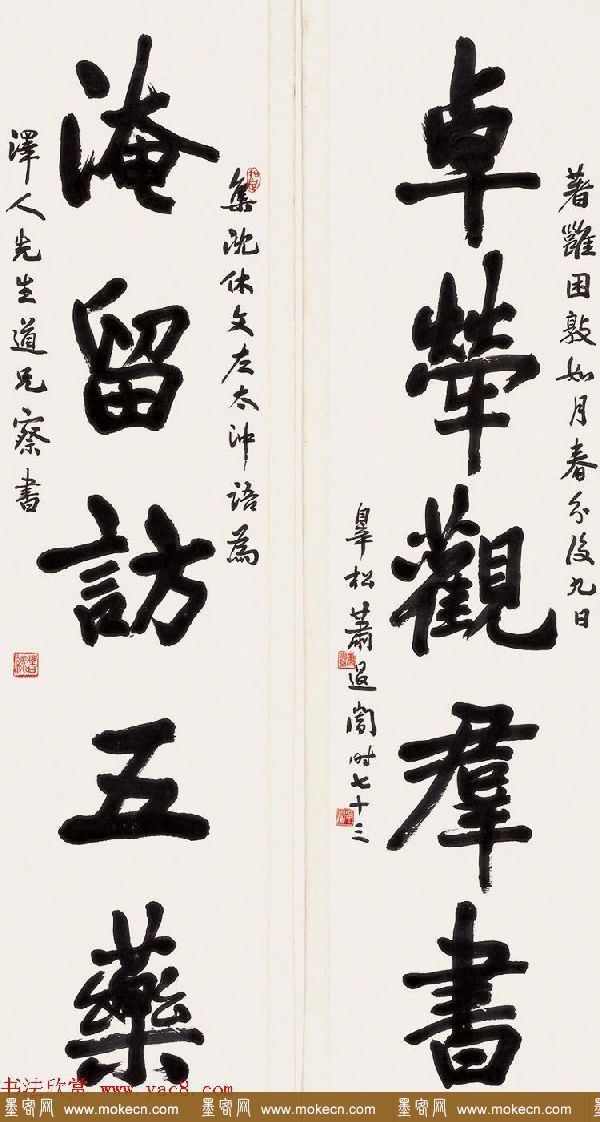 著雝困敦如月春分後九日
卓犖觀羣書
皋松蕭退闇時七十三
集沈休文左太沖語為
淹留訪五藥
澤人先生道兄察書
书法欣赏 www.yac8.com
墨客网 www.mokecn.com 墨客网 www.mokecn.com 墨客网 www.mokecn.com